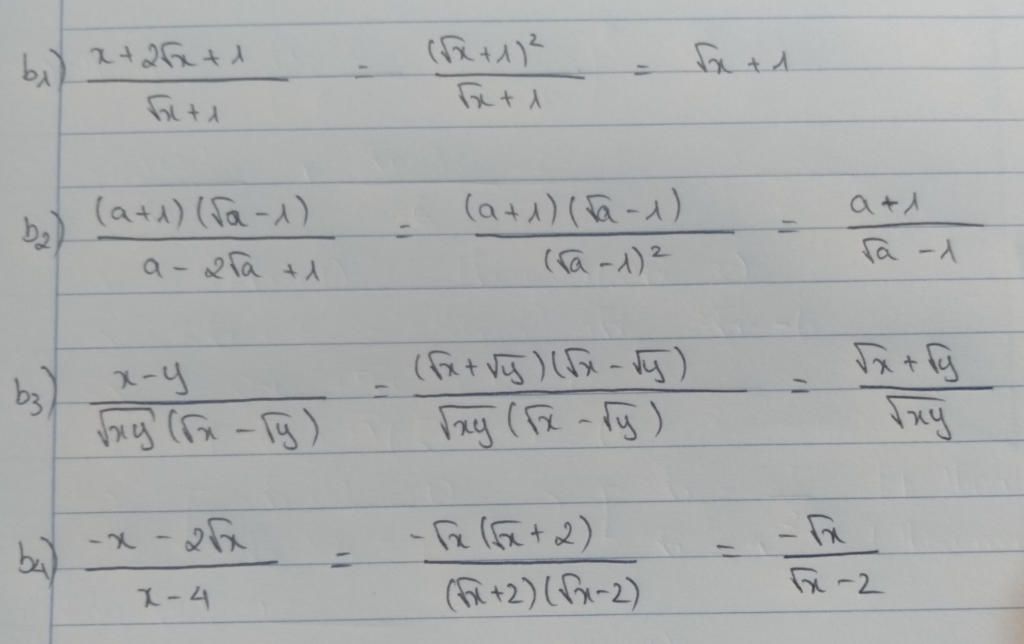 b1) (x + 2√x + 1)/(√x + 1) = (√x + 1)²/(√x + 1) = √x + 1
b2) ((a+1)(√a - 1))/(a - 2√a + 1) = ((a+1)(√a - 1))/((√a - 1)²) = (a + 1)/(√a - 1)
b3) (x - y)/(√xy (√x - √y)) = ((√x + √y)(√x - √y))/(√xy (√x - √y)) = (√x + √y)/√xy
b4) (-x - 2√x)/(x - 4) = (-√x (√x + 2))/((√x + 2)(√x - 2)) = (-√x)/(√x - 2)